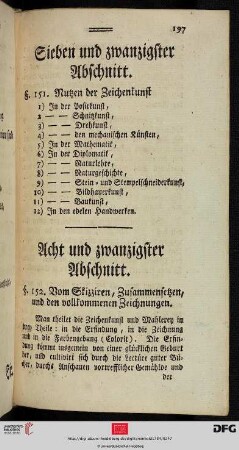 197
Sieben und zwanzigster
Abschnitt.
§. 151. Nutzen der Zeichenkunst
1) In der
2) — — Schnitzkunst,
3) — — Drehkunst,
4) — — den mechanischen Künsten,
5) In der Mathematik,
6) In der Diplomatik,
7) — — Naturlehre,
8) — — Naturgeschichte,
9) — — Stein- und Stempelschneiderkunst,
10) — — Bildhauerkunst,
11) — — Baukunst,
12) In den edelen Handwerken.
Acht und zwanzigster
Abschnitt.
§. 152. Vom Skizziren, Zusammensetzen,
und den vollkommenen Zeichnungen.
Man theilet die Zeichenkunst und Mahlerey in
drey Theile: in die Erfindung, in die Zeichnung
und in die Farbengebung (Colorit). Die Erfin-
dung kömmt insgemein von einer glücklichen Geburt
her, und cultivirt sich durch die Lecture guter Bü-
cher, durchs Anschauen vortrefflicher Gemählde und
der
DFG